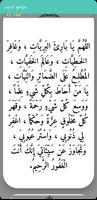 جوامع الدعاء
اللَّهُمَّ يَا بَارِئَ البَرِيَّاتِ ، وَغَافِرَ
الخَطِيَّاتِ ، وَعَالِمَ الخَفِيَّاتِ ،
المُطَّلِعُ عَلَى الضَّمَائِرِ وَالنِّيَّاتِ
يَا مَنْ أَحَاطَ بِكُلِّ شَيْءٍ عِلْماً ،
وَوَسِعَ كُلَّ شَيْءٍ رَحْمَةً ، وَقَهَرَ
كُلَّ مَخْلُوقٍ عِزَّةً وَحُكْماً ، اغْفِرْ
لِي ذُنُوبِي ، وَاسْتُرْ عُيُوبِي ،
وَتَجَاوَزْ عَنْ سَيِّئَاتِي إِنَّكَ أَنْتَ
الغَفُورُ الرَّحِيمُ.